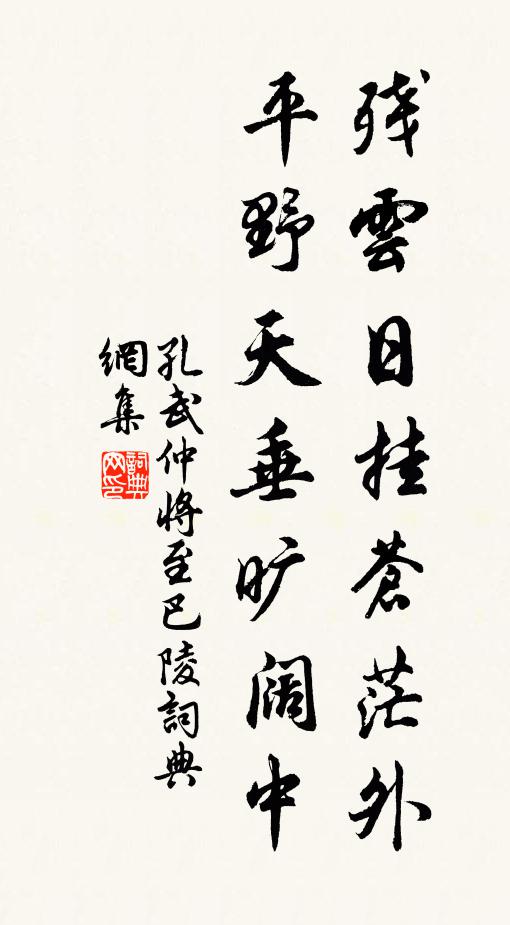 残雲日挂蒼茫外
平野天垂旷阔中
孔武仲將至巴陵詞典
網集
詞典
网印